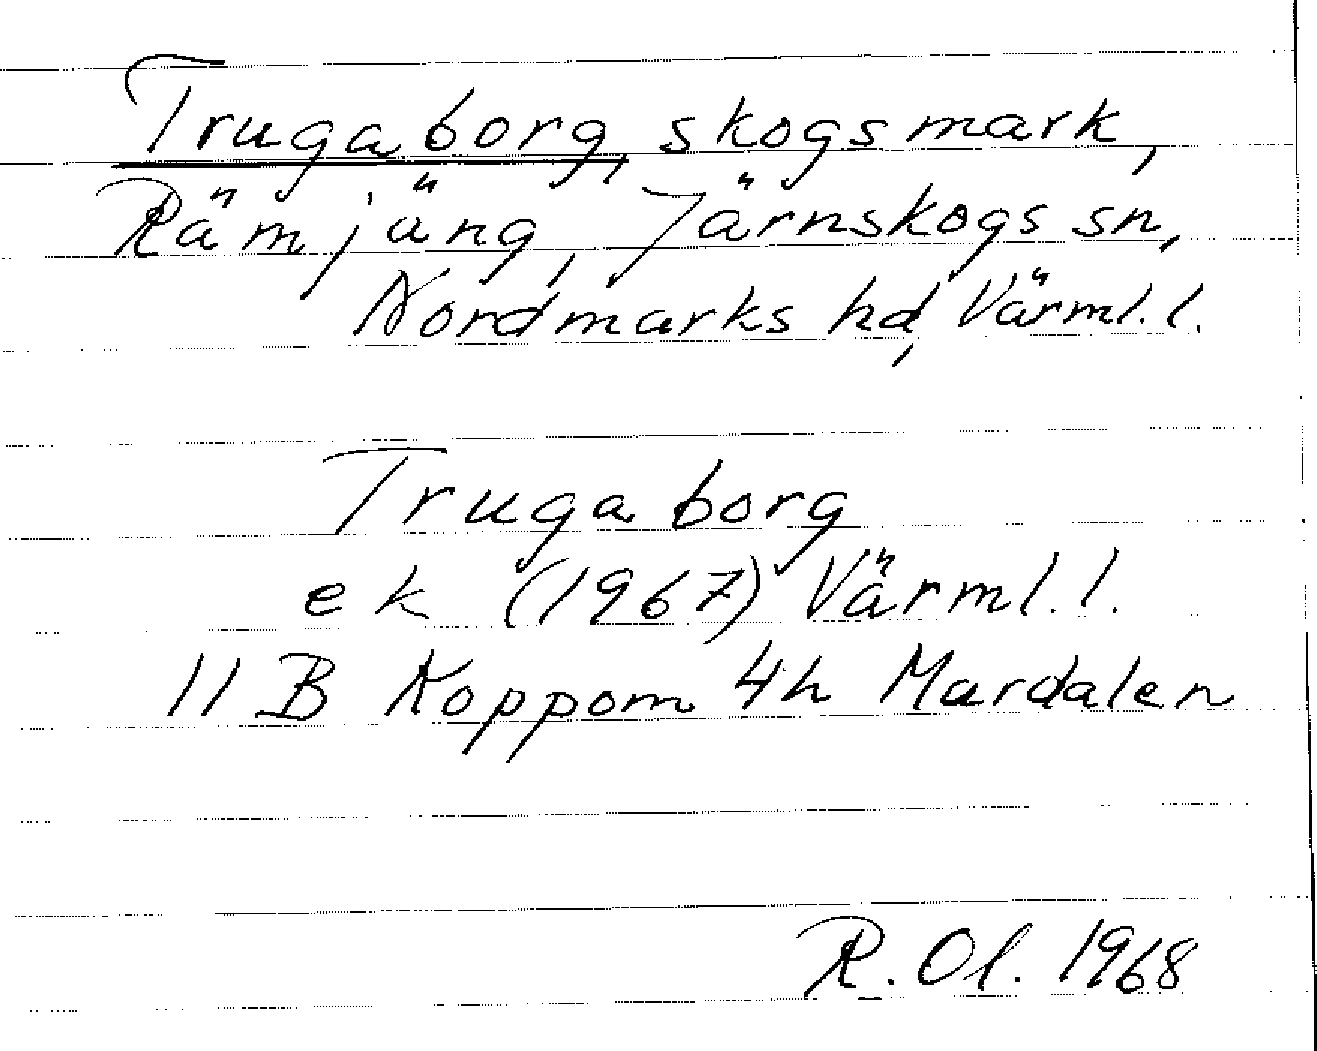 Trugaborg, skogsmark,
Rämjäng, Järnskogs sn,
Nordmarks hd, Värml. l.
Trugaborg
ek (1967) Värml. l.
11 B Koppom 4h Mardalen
R. Ol. 1968